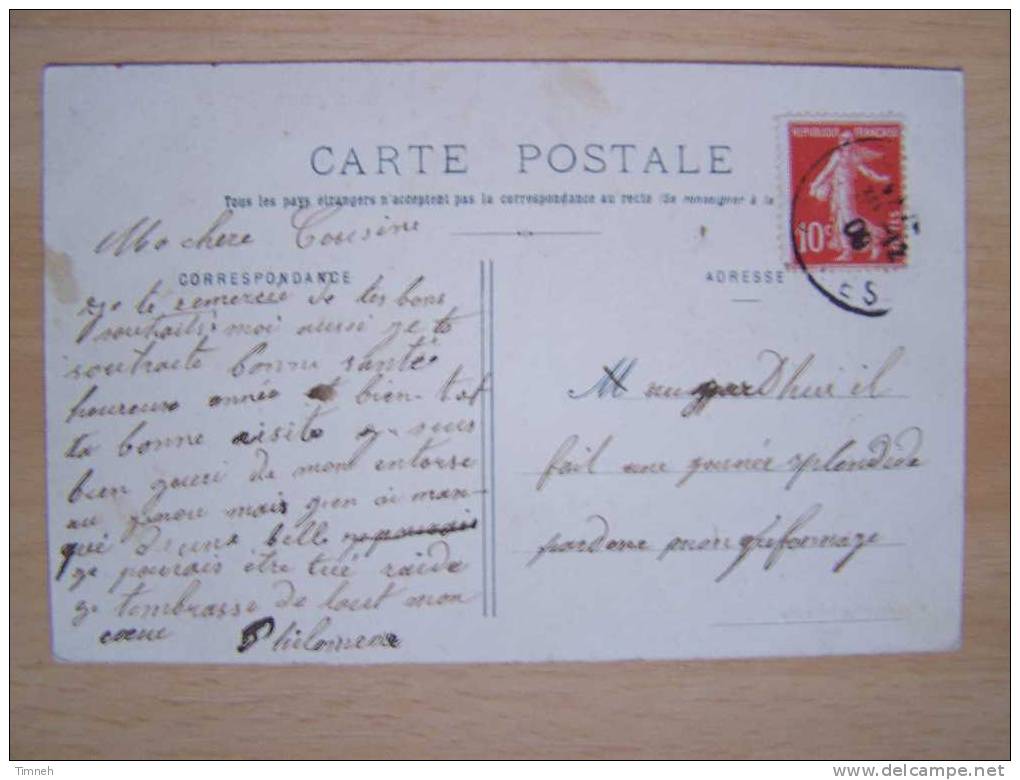 CARTE POSTALE
Tous les pays étrangers n'acceptent pas la correspondance au recto (Se renseigner à la
REPUBLIQUE FRANÇAISE
10c
Ma chere Cousine
CORRESPONDANCE
Je te remercie de tes bons
souhaits moi aussi je te
souhaite bonne santé
heureuse année et bien-tot
ta bonne visite je suis
bien gueri de mon entorse
au genou mais j'en ai man-
qué d'une belle je pourais
je pourais être tué raide
je tembrasse de tout mon
coeur Philomene
ADRESSE
M aujourD'hui il
fait une journée splendide
pardone mon
Timneh
delcampe.net